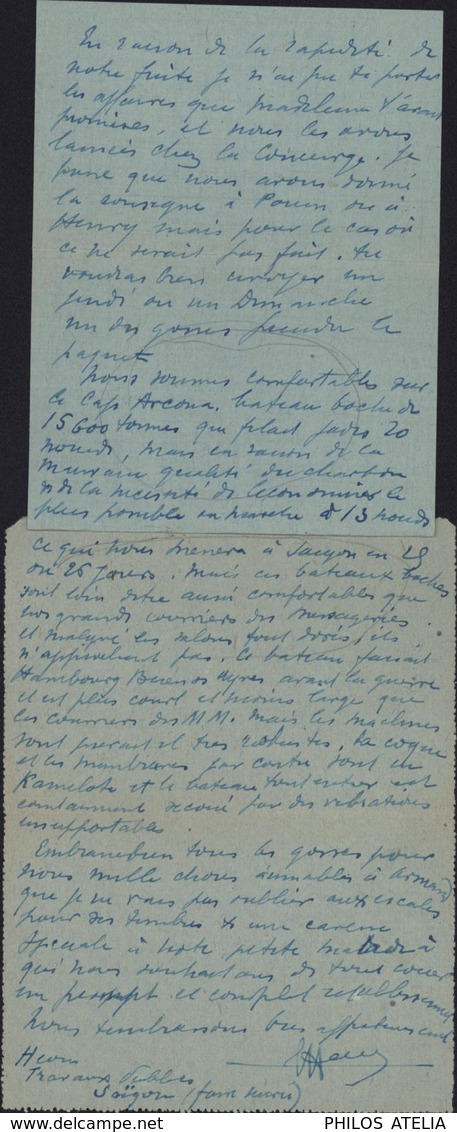 En raison de la rapidité de
notre fuite je n'ai pu te porter
les affaires que Madeleine t'avait
promises, et nous les avons
laissés chez la Concierge. Je
pense que nous avons donné
la consigne à ou à
Henry mais pour le cas où
ce ne serait pas fait, tu
voudras bien envoyer un
jeudi ou un Dimanche
un des gosses prendre le
paquet
Nous sommes comfortables sur
le Cap Arcona, bateau boche de
15600 tonnes qui filait jadis 20
noeuds, mais en raison de la
mauvaise qualité du charbon
& de la nécessité de l'économiser le
plus possible en marche à 13 noeuds
ce qui nous mènera à Saigon en 25
ou 26 jours. Mais ces bateaux boches
sont loin d'être aussi comfortables que
nos grands courriers des Messageries.
et malgré les salons tout dorés, ils
n'approchent pas. Ce bateau faisait
Hambourg Buenos Ayres avant la guerre
il est plus court et moins large que
les courriers des MM. Mais les machines
sont paraît il très robustes, la coque
et les membrures par contre sont en
Kamelote et le bateau tout entier est
constamment secoué par des vibrations
insupportables.
Embrasse bien tous les gosses pour
nous mille choses aimables à Armand
que je ne vais pas oublier aux escales
pour ses timbres & une caresse
spéciale à notre petite malade à
qui nous souhaitons de tout coeur
un prompt et complet rétablissement
Nous t'embrassons bien affectueusement
Travaux Publics
Saïgon (faire suivre)
PHILOS ATELIA